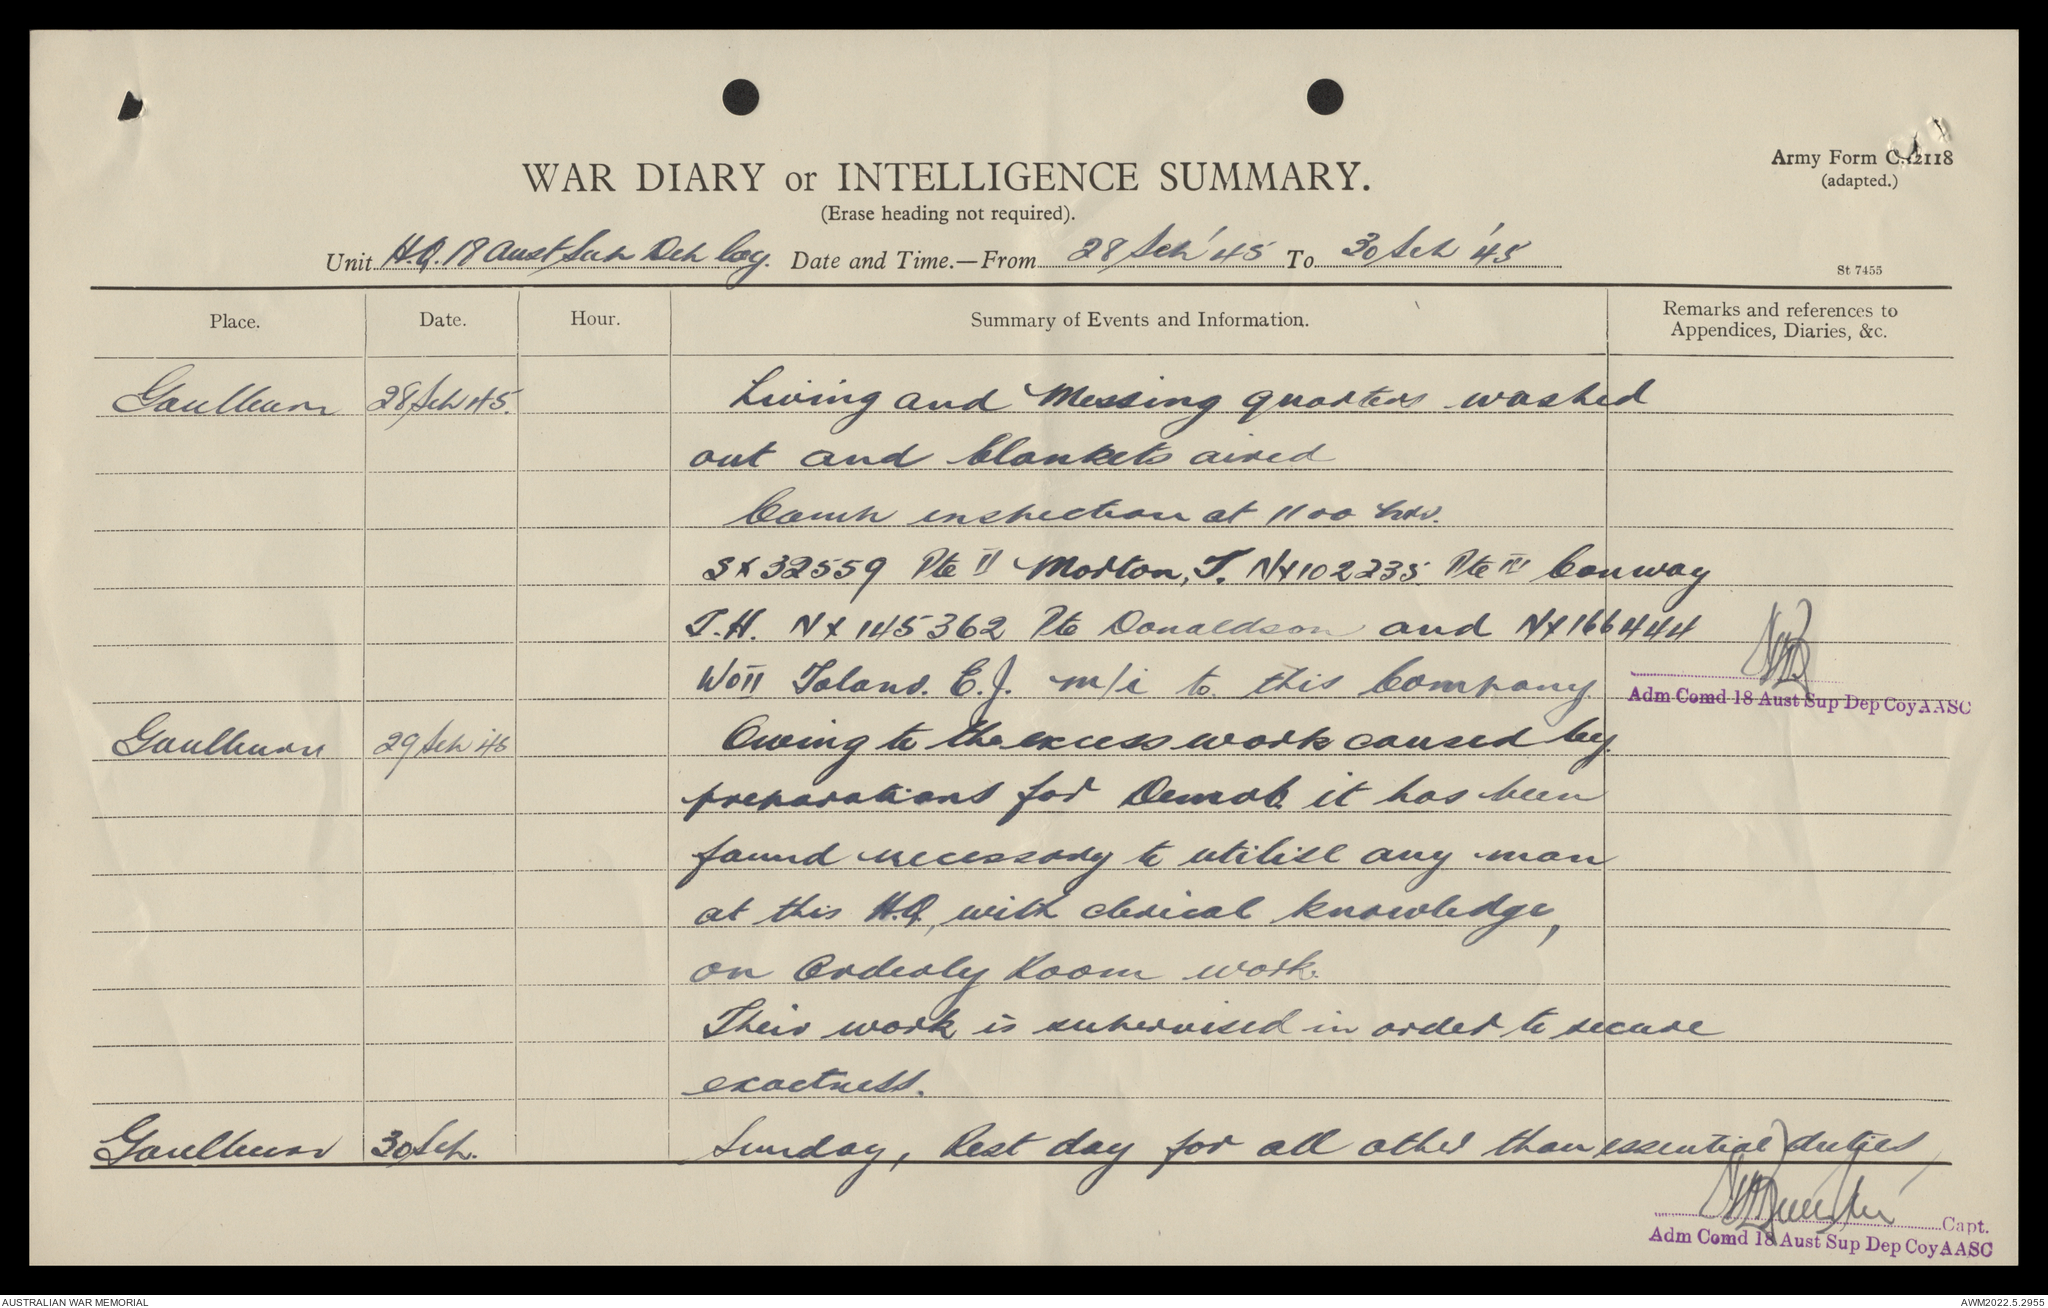 Army Form C.2118
(adapted.)
WAR DIARY or INTELLIGENCE SUMMARY.
(Erase heading not required).
Unit H.Q. 18 Aust Sup Dep Coy. Date and Time.—From 28 Sep '45 To 30 Sep '45
St 7455
Place. Date. Hour. Summary of Events and Information. Remarks and references to
Appendices, Diaries, &c.
Goulburn 28 Sep 45. Living and Messing quarters washed
out and blankets aired
Camp inspection at 1100 hrs.
SX32559 Pte II Morton, J. NX102235 Pte III Conway
J.H. NX145362 Pte Donaldson and NX166444
WOII Toland. E.J. m/i to this Company.
Adm Comd 18 Aust Sup Dep Coy AASC
Goulburn 29 Sep 45 Owing to the excess work caused by
preparations for Demob. it has been
found necessary to utilise any man
at this H.Q. with clerical knowledge,
on Orderly Room work.
Their work is supervised in order to secure
exactness.
Goulburn 30 Sep. Sunday, Rest day for all other than essential duties
Capt.
Adm Comd 18 Aust Sup Dep Coy AASC
AUSTRALIAN WAR MEMORIAL
AWM2022.5.2955